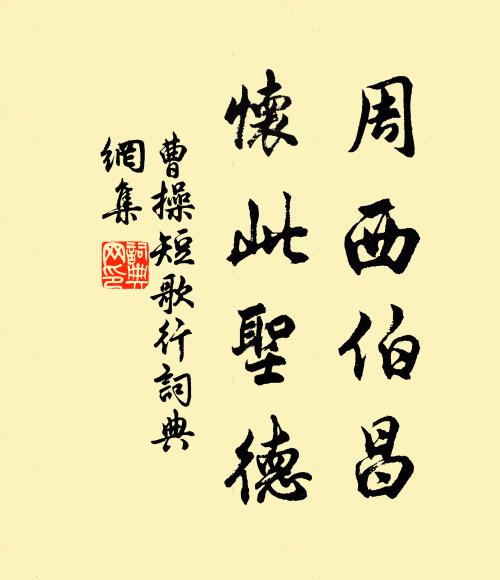 周西伯昌
懷此聖德
曹操短歌行詞典
網集
詞典網印